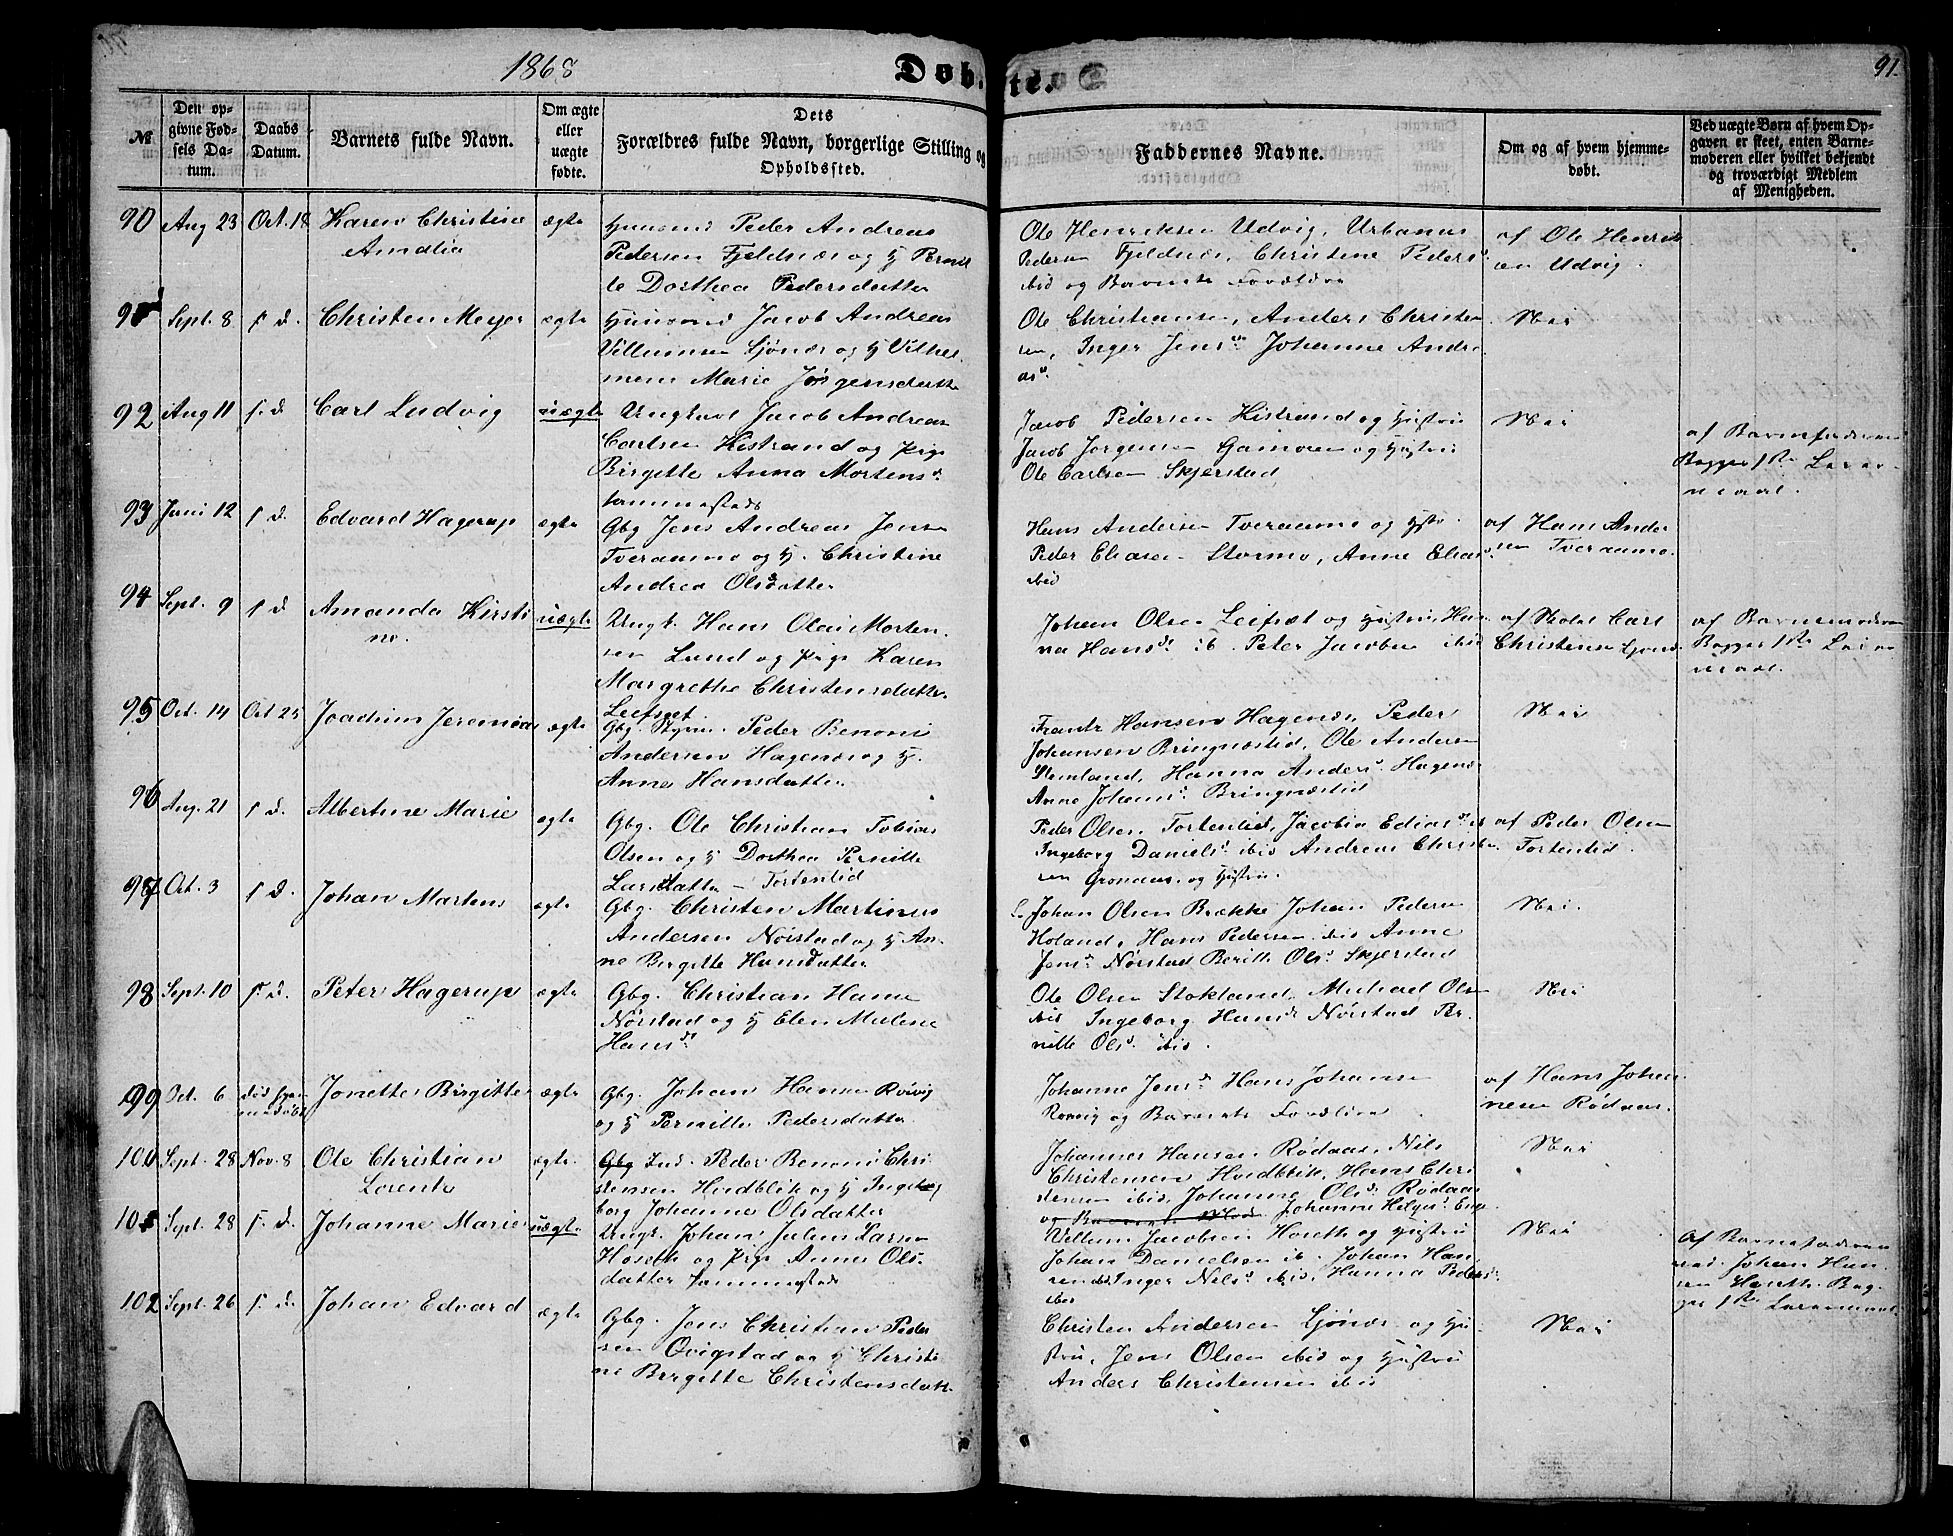 1868
Døbte.
91.
№
Den op-
givne Fød-
sels Da-
tum.
Daabs
Datum.
Barnets fulde Navn.
Om ægte
eller
uægte
fødte.
Dets
Forældres fulde Navn, borgerlige Stilling og
Opholdssted.
Faddernes Navne.
Om og af hvem hjemme-
døbt.
Ved uægte Børn af hvem Op-
gaven er skeet, enten Barne-
moderen eller hvilket bekjendt
og troværdigt Medlem
af Menigheden.
90 Aug 23 Oct. 18 Karen Christine
Amalia
ægte
Huusmd Peder Andreas
Pedersen Fjeldnæs og H Pernil
le Dorthea Pedersdatter
Ole Henriksen Udvig, Urbanus
Pedersen Fjeldnæs, Christine Peders
ibid og Barnets Forældre
af Ole Henrik
sen Udvig.
91 Sept. 8 s. d. Christen Meyer ægte
Huusmd Jacob Andreas
Villumsen Ljønæs og H Vilhel
mem Marie Jørgensdatter
Ole Christiansen, Anders Christen
sen, Inger Jens Johanne Andre
as
Nei
92 Aug 11 s. d. Carl Ludvig uægte
Ungkarl Jacob Andreas
Carlsen Kistrand og Pige
Birgitte Anna Mortens
sammesteds
Jacob Pedersen Kistrand og Hustru
Jacob Jørgensen og Hustru
Ole Carlsen Skjerstad
Nei
af Barnefaderen
Begges 1ste Leier
maal.
93 Juni 12 s. d. Edvard Hagerup ægte
Gbg Jens Andreas Jensen
Tveraamo og H. Christine
Andrea Olsdatter
Hans Andersen Tveraamo og Hstr.
Peder Eliasen Stormo, Anne Elias
ibid
af Hans Ander
sen Tveraamo.
94 Sept. 9 s. d. Amanda Kirsti
ne.
uægte
Ungk. Hans Olai Morten
sen Lund og Pige Karen
Margrethe Christensdatter
Leifset.
Johan Olsen Leifset og Hustru, Han
na Hans ib. Peter Jacobsen ibid
af Skolel Carl
Christensen
af Barnemoderen
Begges 1ste Leier
maal.
95 Oct. 14 Oct 25 Joachim Jeremias ægte
Gbg. Peder Benoni
Andersen Hagenæs og H.
Anne Hansdatter
Frantz Hansen Hagenæs, Peder
Johansen Bringnæslid, Ole Andersen
Stemland, Hanna Anders Hagenæs
Anne Johans Bringnæslid
Nei
96 Aug. 21 s. d. Albertine Marie ægte
Gbg. Ole Christian Tobias
Olsen og H Dorthea Pernille
Larsdatter – Tortenlid
Peder Olsen Tortenlid, Jacobia Edias
Ingeborg Daniels ibid Andreas Christen
sen Grønaas og Hustru
af Peder Olsen
Tortenlid.
97 Oct. 3 s. d. Johan Martens ægte
Gbg. Christen Martinus
Andersen Nørstad og H An
ne Birgitte Hansdatter
Johan Olsen Bække Johan Pedersen
Holand, Hans Pedersen ibid Anne
Jens Nørstad Berith Ols Skjerstad
Nei.
98 Sept. 10 s. d. Peter Hagerup ægte
Gbg. Christian Hansen
Nørstad og H Elen Malene
Hans
Ole Olsen Stokland, Michael Olsen
ibid Ingeborg Hans Nørstad Per
nille Ols ibid.
Nei
99 Oct. 6 død hjem
medøbt
Jonette Birgitte ægte
Gbg. Johan Hansen Røvig
og H Pernille Pedersdatter
Johanne Jens Hans Johansen
Rørvig og Barnets Forældre
af Hans Johan
nesen Rødaas.
100 Sept. 28 Nov. 8 Ole Christian
Lorents
ægte.
Gbg Ind. Peder Benoni Chri
stensen Hvidblik og H Inge
borg Johanne Olsdatter
Johannes Hansen Rødaas, Nils
Christensen Hvidblik, Hans Chri
stensen ibid, Johanne Ols Rødaas
og Barnets Mod. Johanne Helges
Nei
101 Sept. 28 s. d. Johanne Marie uægte
Ungk. Johan Julius Larsen
Hoseth og Pige Anne Ols
datter sammesteds
Villum Jacobsen Hoseth og Hustru
Johan Danielsen ib. Johan Han
sen ibid, Inger Nils ibid, Hanna Peders
ibid
Nei
af Barnefaderen
ved Johan Han
sen Hoseth. Beg
ges 1ste Leiermaal
102 Sept. 26 s. d. Johan Edvard ægte
Gbg. Jens Christian Peder
sen Øvigstad og H Christi
ne Birgitte Christensdatt.
Christen Andersen Ljønæs og Hu
stru, Jens Olsen ibid og Hustru
Anders Christensen ibid
Nei